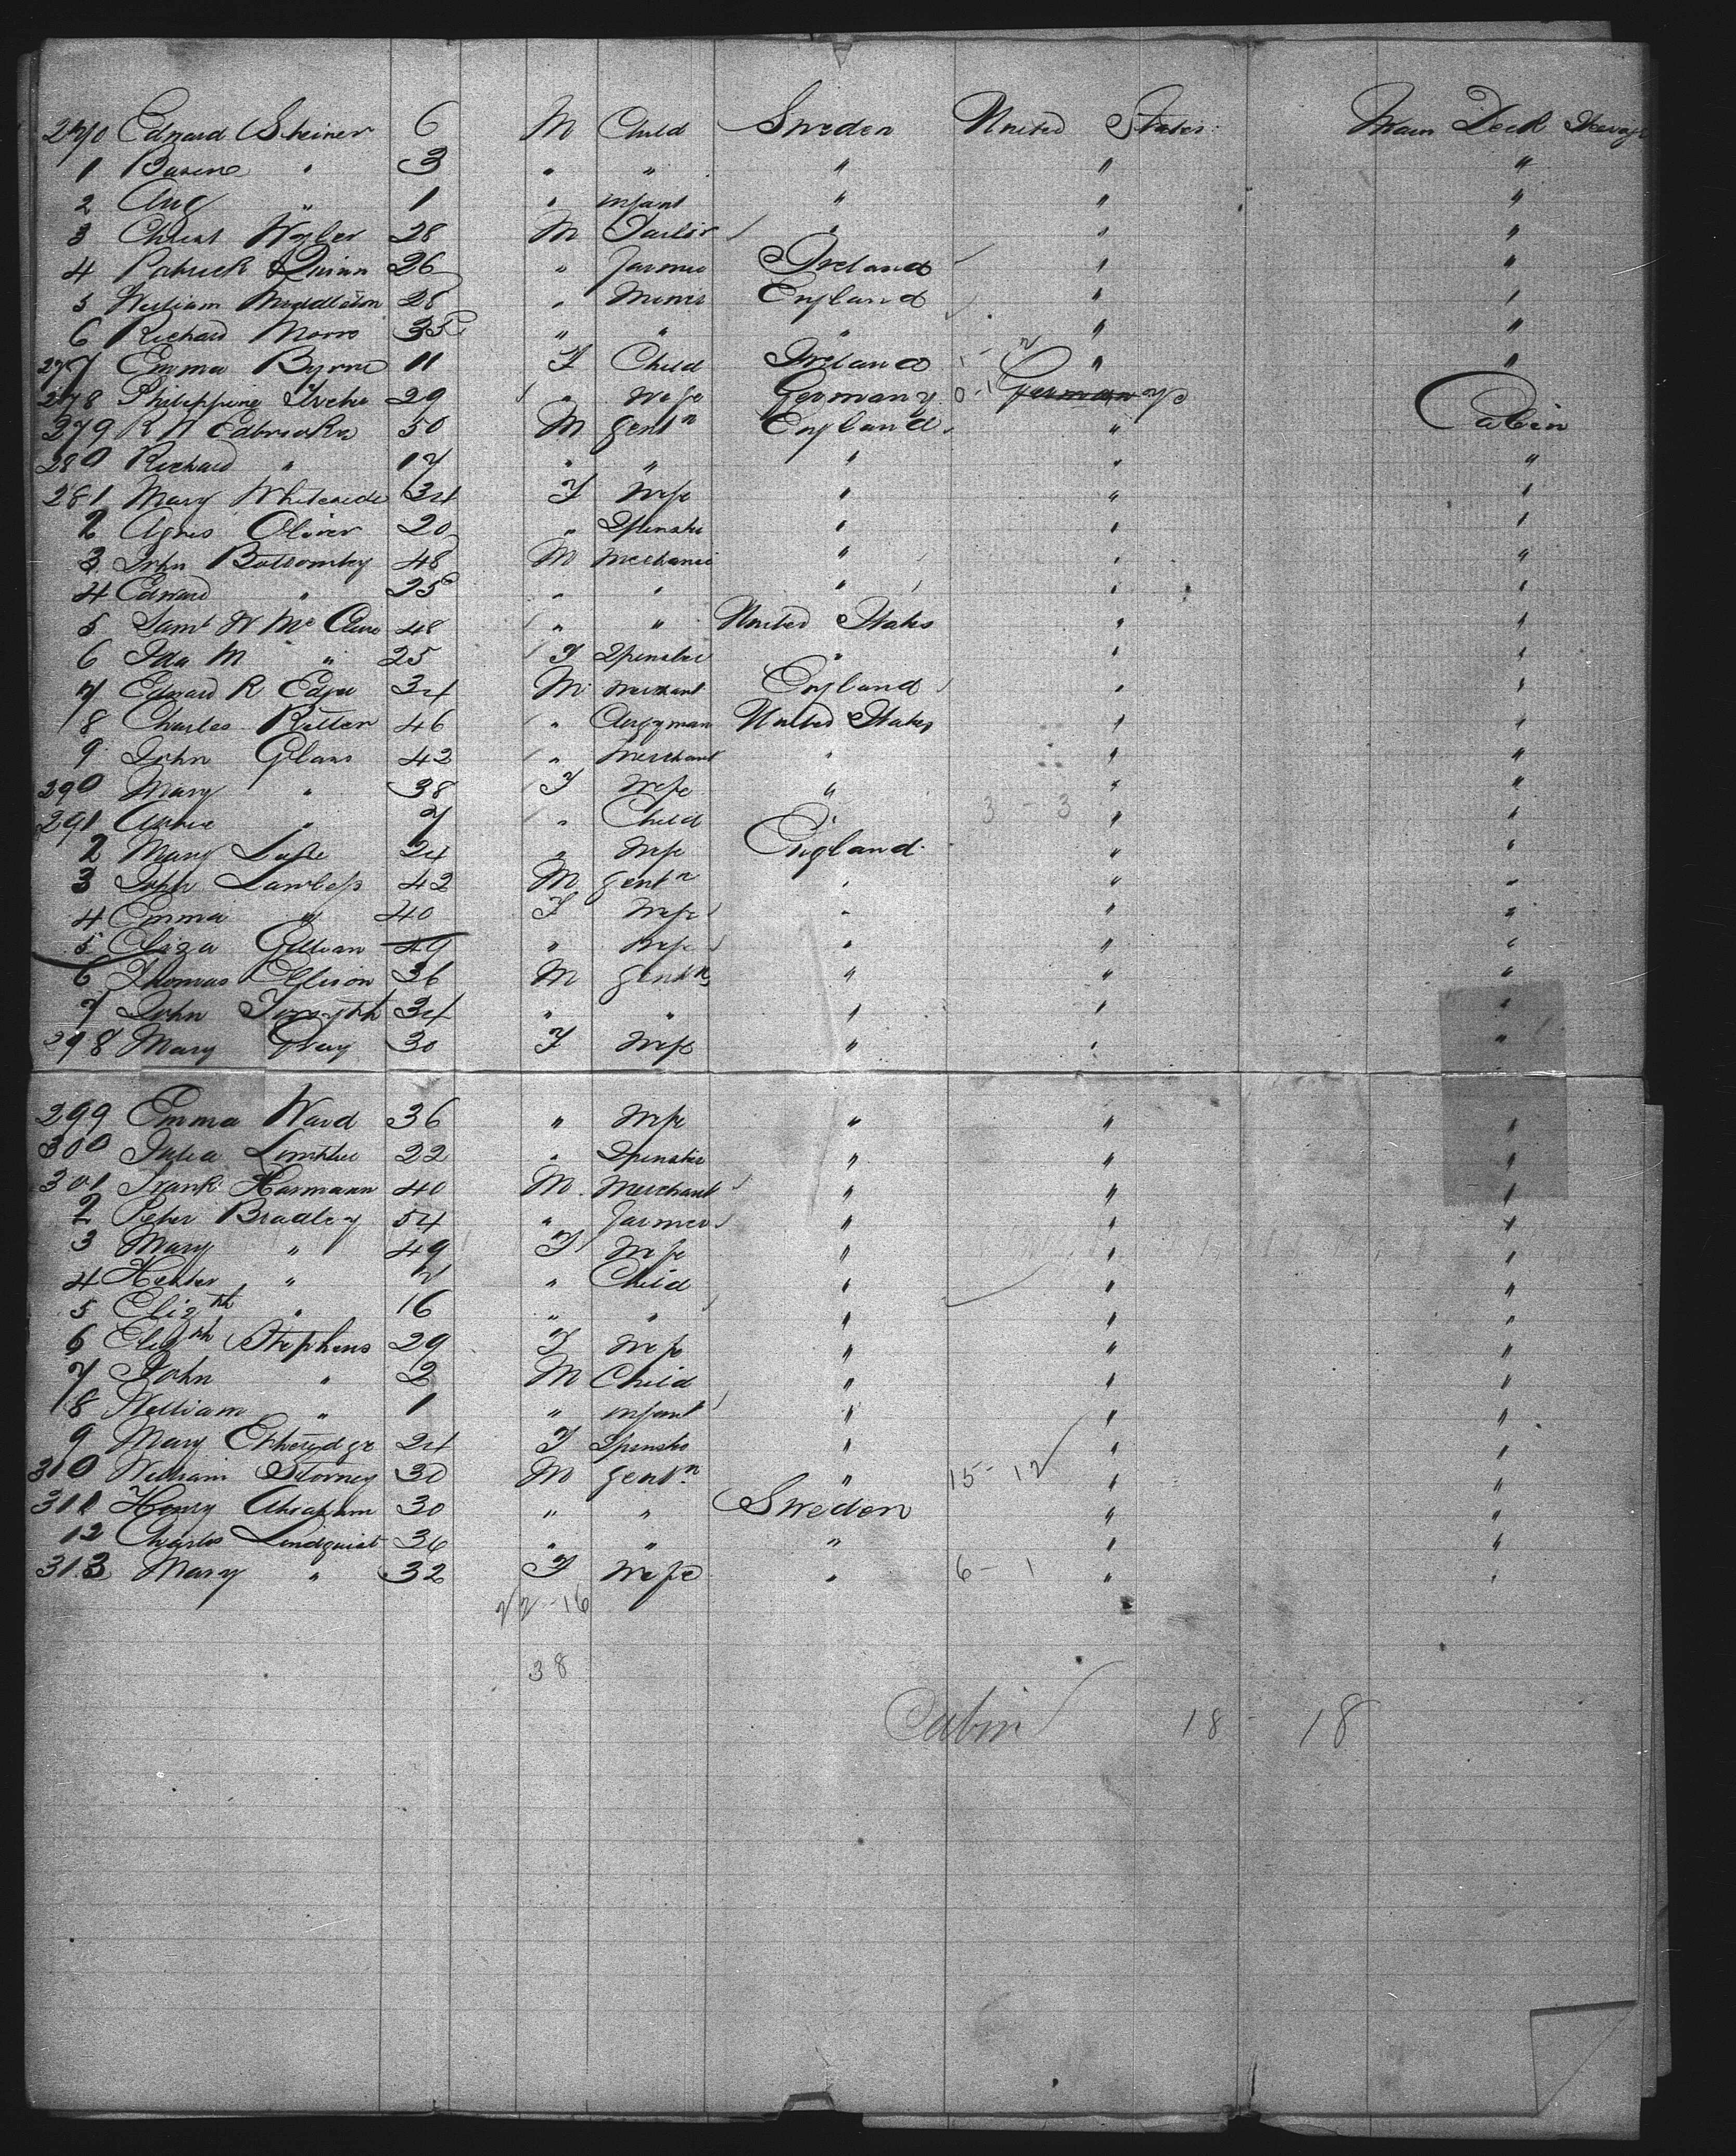 270 Edward Steiner 6 M Child Sweden United States Main Deck Steerage
1 " 3 " " " " "
2 Aug " 1 " infant " " "
3 Christ Wyler 28 M Tailor " " "
4 Patrick Quinn 26 " Farmer Ireland " "
5 William Middleton 28 " Miner England " "
6 Richard 35 " " " " "
277 Emma Byrne 11 F Child Ireland 1 - 2 " "
278 Philippine 29 " Wife Germany 0-1 Germany
279 R N 50 M Gentn England " Cabin
280 Richard " 17 " " " " "
281 Mary Whiteside 34 F Wife " " "
2 Agnes Oliver 20 " Spinster " " "
3 John Bottomley 48 M Mechanic " " "
4 Edward " 25 " " " " "
5 Saml W Mc Clure 48 " " United States " "
6 Ida M " 25 F Spinster " " "
7 Edward R 34 M Merchant England " "
8 Charles Ritter 46 " Clergyman United States " "
9 John Glass 42 " Merchant " " "
290 Mary " 38 F Wife " " "
291 Annie " 7 " Child " 3 - 3 " "
2 Mary 24 " Wife England " "
3 John Lawless 42 M Gentn " " "
4 Emma " 40 F Wife " " "
5 Eliza 49 " Wife " " "
6 Thomas Ellison 36 M Gentn " " "
7 John Forsyth 34 " " " " "
298 Mary Gray 30 F Wife " " "
299 Emma Ward 36 " Wife " " "
300 Julia 22 " Spinster " " "
301 Frank Harmann 40 M Merchant " " "
2 Peter Bradley 54 " Farmer " " "
3 Mary " 49 F Wife " " "
4 Hester " 7 " Child " " "
5 Elizth " 16 " " " " "
6 Elizth Stephens 29 F Wife " " "
7 John " 2 M Child " " "
8 William " 1 " infant " " "
9 Mary Etheridge 24 F Spinster " " "
310 William Storney 30 M Gentn " 15 - 12 " "
311 Henry Abraham 30 " " Sweden " "
12 Charles Lindquist 36 " " " " "
313 Mary " 32 F Wife " 6 - 1 " "
22 - 16
38
Cabin 18 - 18